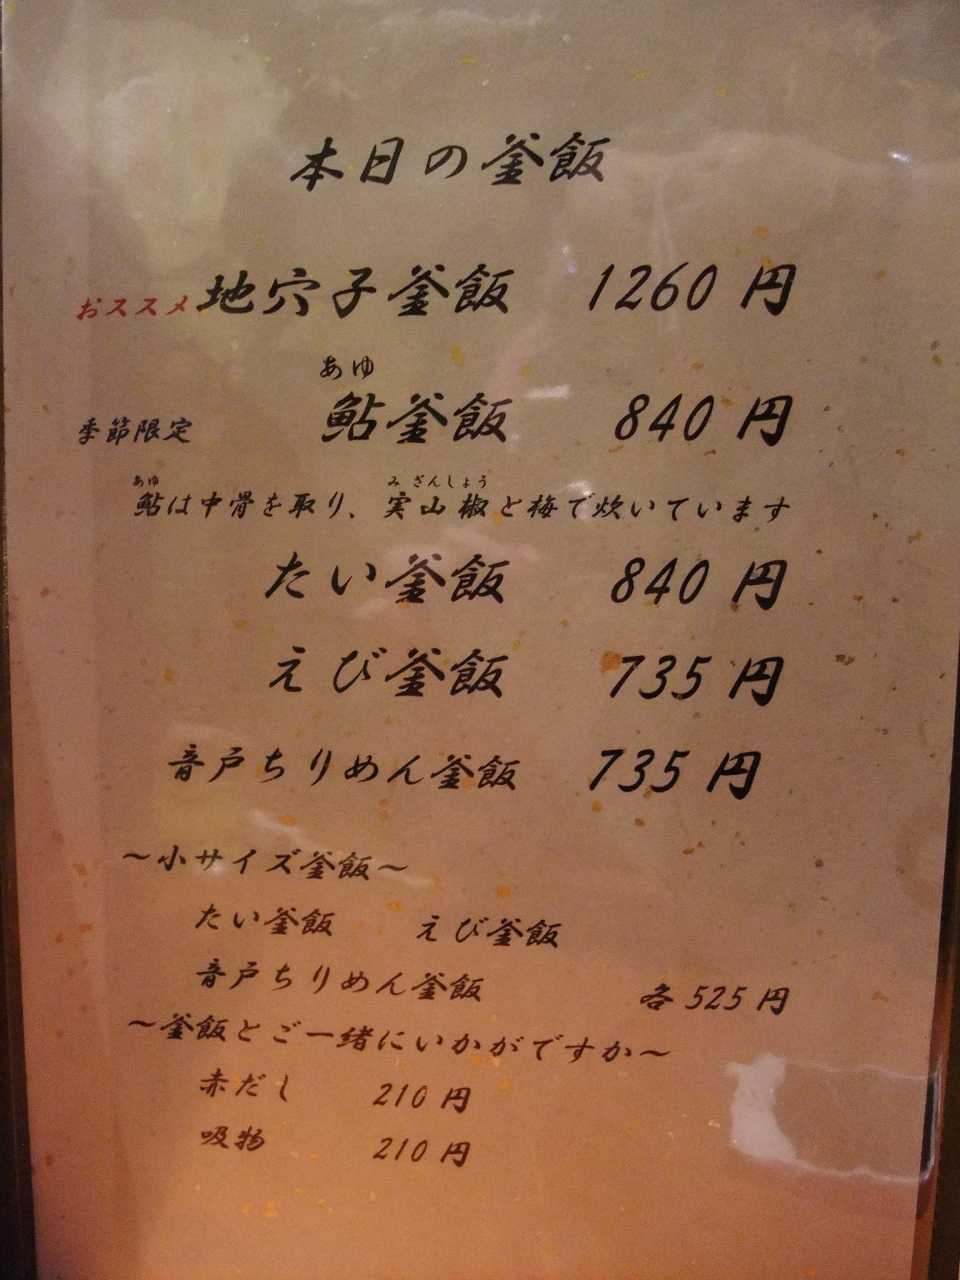 本日の釜飯
おススメ地穴子釜飯 1260 円
あゆ
季節限定 鮎釜飯 840 円
あゆ みざんしょう
鮎は中骨を取り、実山椒と梅で炊いています
たい釜飯 840 円
えび釜飯 735 円
音戸ちりめん釜飯 735 円
～小サイズ釜飯～
たい釜飯 えび釜飯
音戸ちりめん釜飯 各 525 円
～釜飯とご一緒にいかがですか～
赤だし 210 円
吸物 210 円